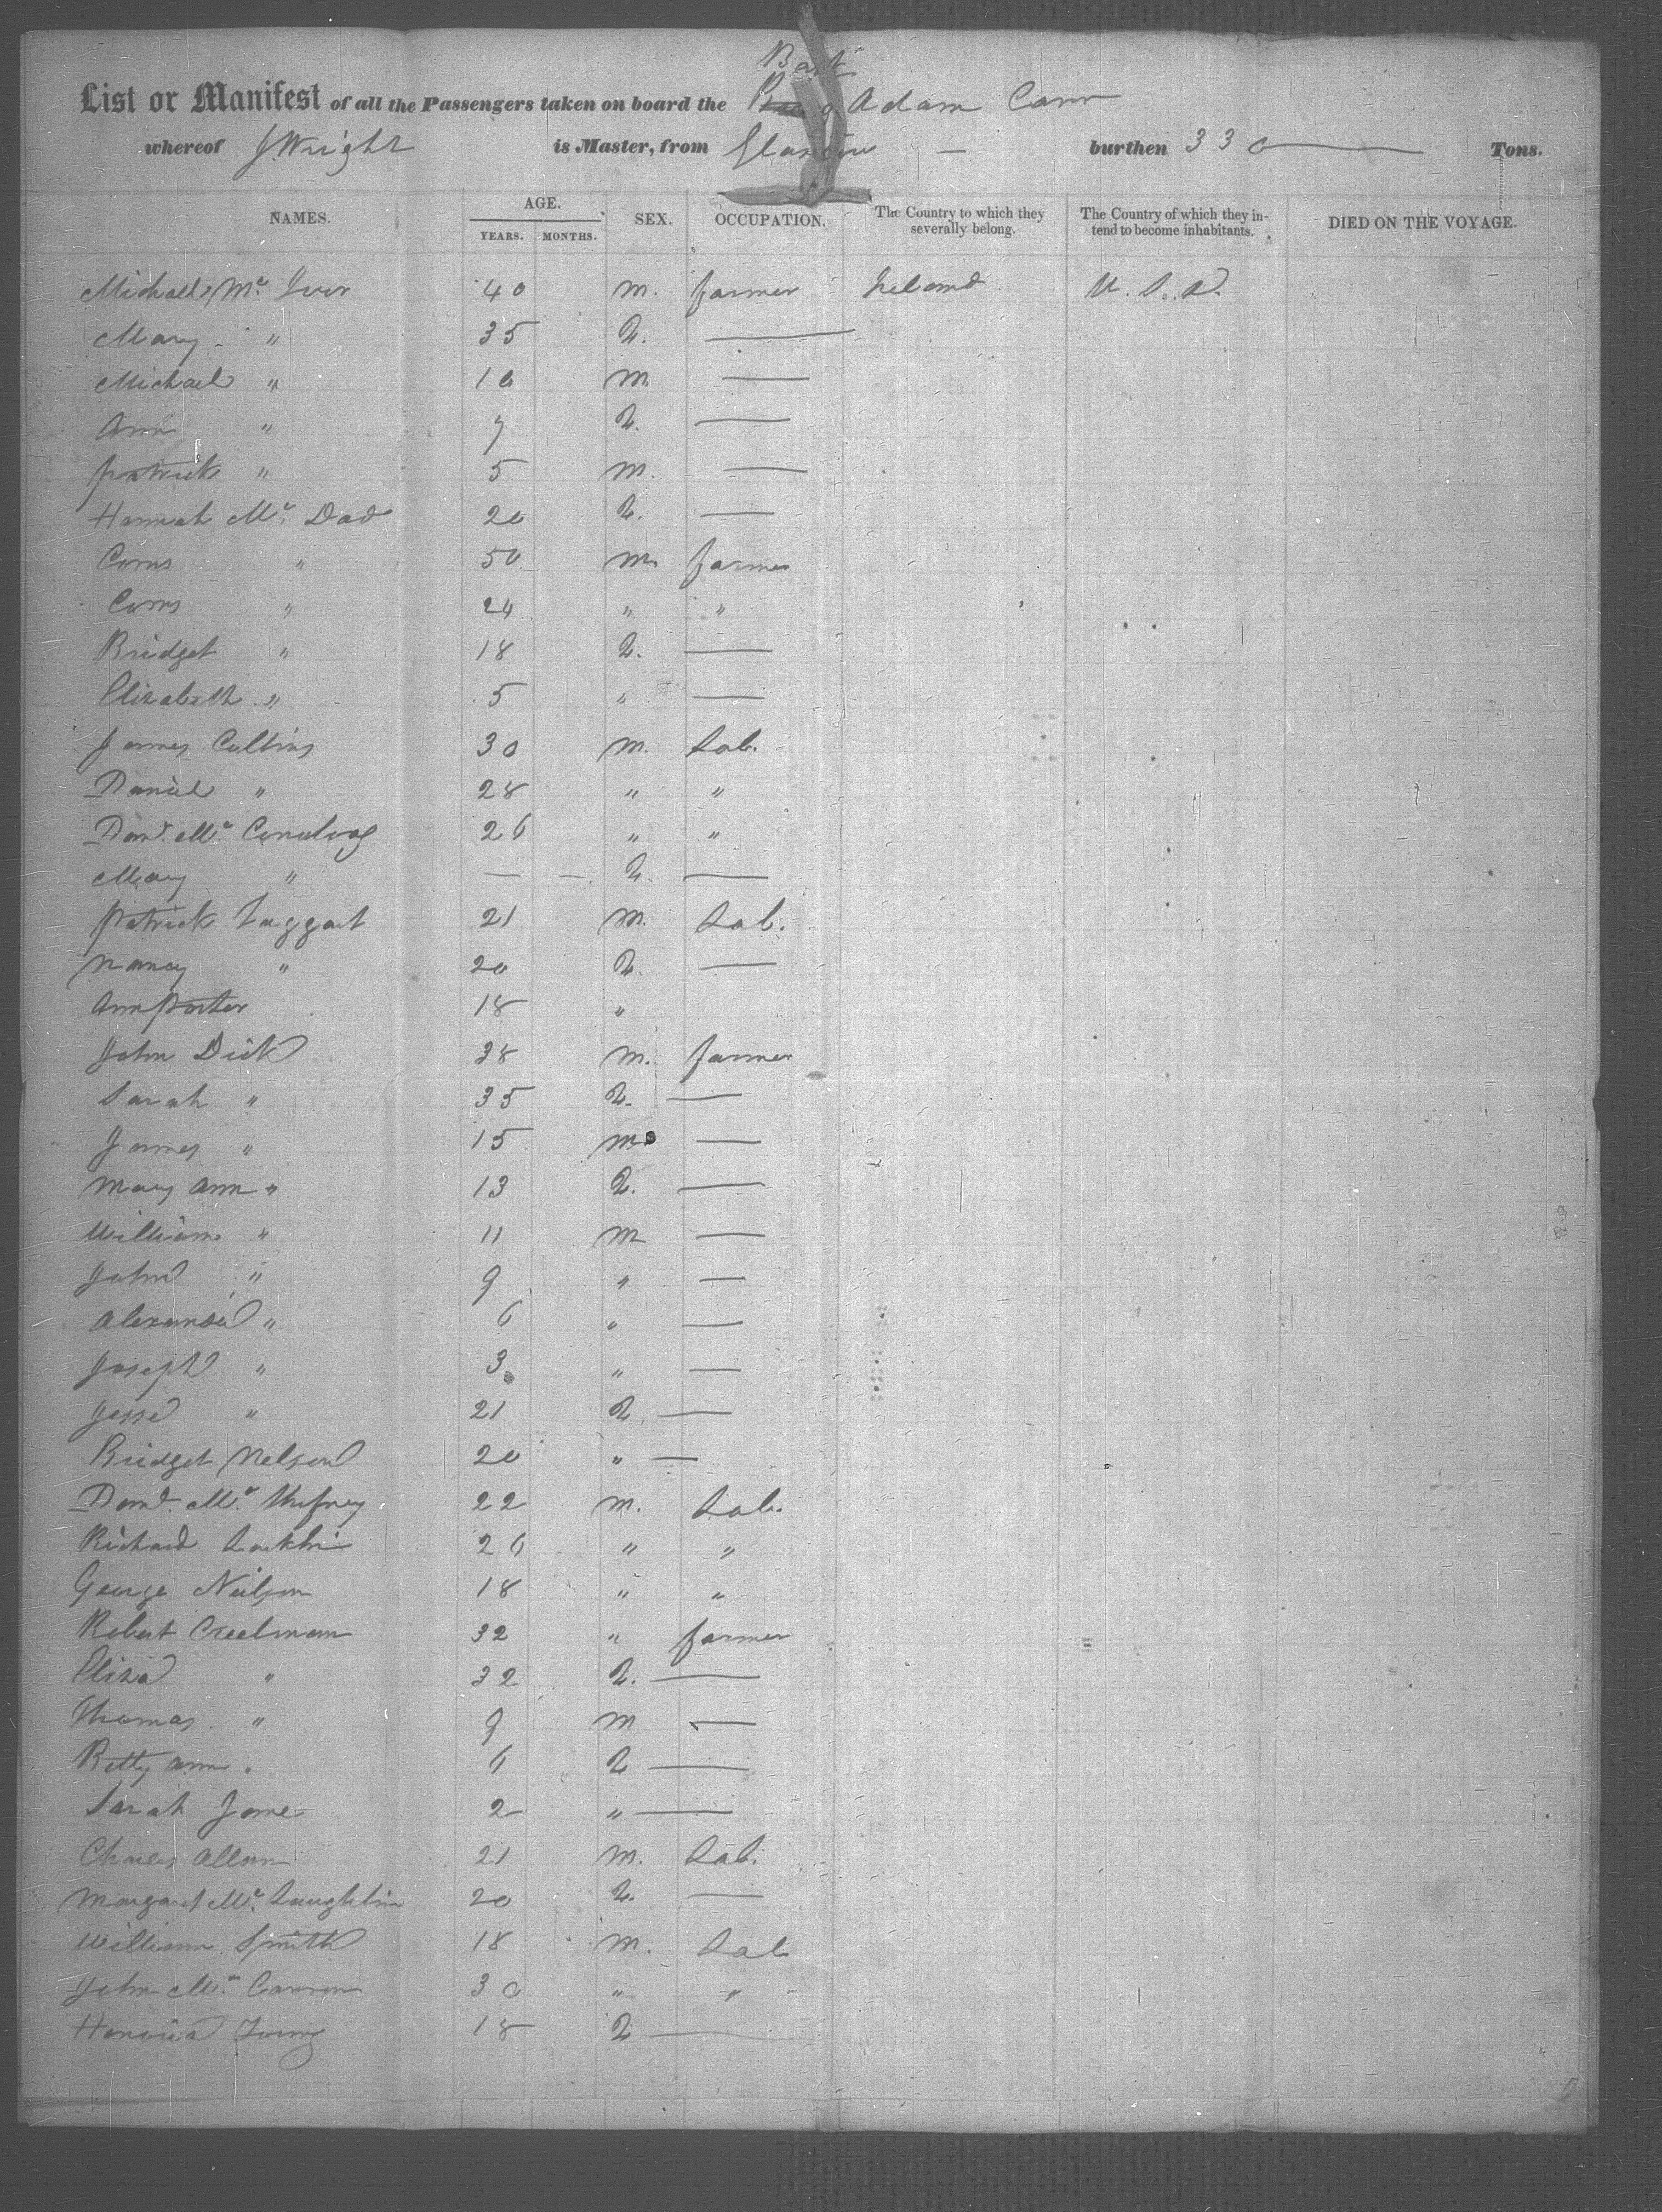 Bark
List or Manifest of all the Passengers taken on board the Adam Carr
whereof J Wright is Master, from Glasgow — burthen 330 Tons.
NAMES. AGE. YEARS. MONTHS. SEX. OCCUPATION. The Country to which they severally belong. The Country of which they in-tend to become inhabitants. DIED ON THE VOYAGE.
Michael Mc Iver 40 m. farmer Ireland U.S.A.
Mary " 35 f. —
Michael " 10 m —
Ann " 7 f. —
Patrick " 5 m. —
Hannah Mc Dad 20 f. —
Corns " 50 m farmer
Corns " 24 " "
Bridget " 18 f. —
Elizabeth " 5 " —
James Collins 30 m. Lab.
Daniel " 28 " "
Danl. Mc 26 " "
Mary " — — f. —
Patrick Taggart 21 m. Lab.
Nancy " 20 f. —
Ann Porter 18 "
John Dick 38 m. farmer
Sarah " 35 f. —
James " 15 m —
Mary Ann " 13 f. —
William " 11 m —
John " 9 " —
Alexander " 6 " —
Joseph " 3 " —
Jesse " 21 f —
Bridget Nelson 20 " —
Danl. Mc 22 m. Lab.
Richard 26 " "
George Neilson 18 " "
Robert Creelman 32 " farmer
Eliza " 32 f. —
Thomas " 9 m —
Betty Ann " 6 f —
Sarah Jane 2 " —
Charles Allan 21 m. Lab.
Margaret Mc Laughlin 20 f. —
William Smith 18 m. Lab
John Mc 30 " "
18 f —